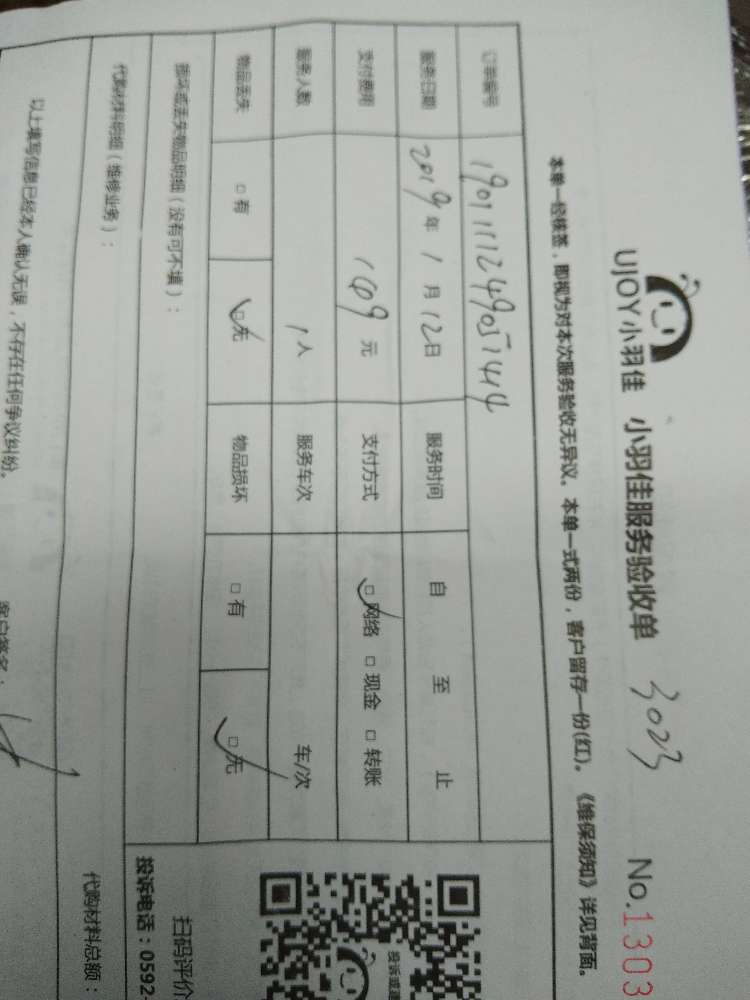 UJOY小羽佳 小羽佳服务验收单 3023 No.1303
本单一经核签，即视为对本次服务验收无异议。本单一式两份，客户留存一份(红)。《维保须知》详见背面。
订单编号 190111124905 1414
服务日期 2019年1月12日 服务时间 自 至 止
支付费用 169元 支付方式 □网络 □现金 □转账
服务人数 1人 服务车次 车/次
物品丢失 □有 □无 物品损坏 □有 □无
损坏或丢失物品明细（没有可不填）：
代购材料明细（维修业务）：
以上填写信息已经本人确认无误，不存在任何争议纠纷。
客户签名：
投诉或建
扫码评价
投诉电话：0592-
代购材料总额：